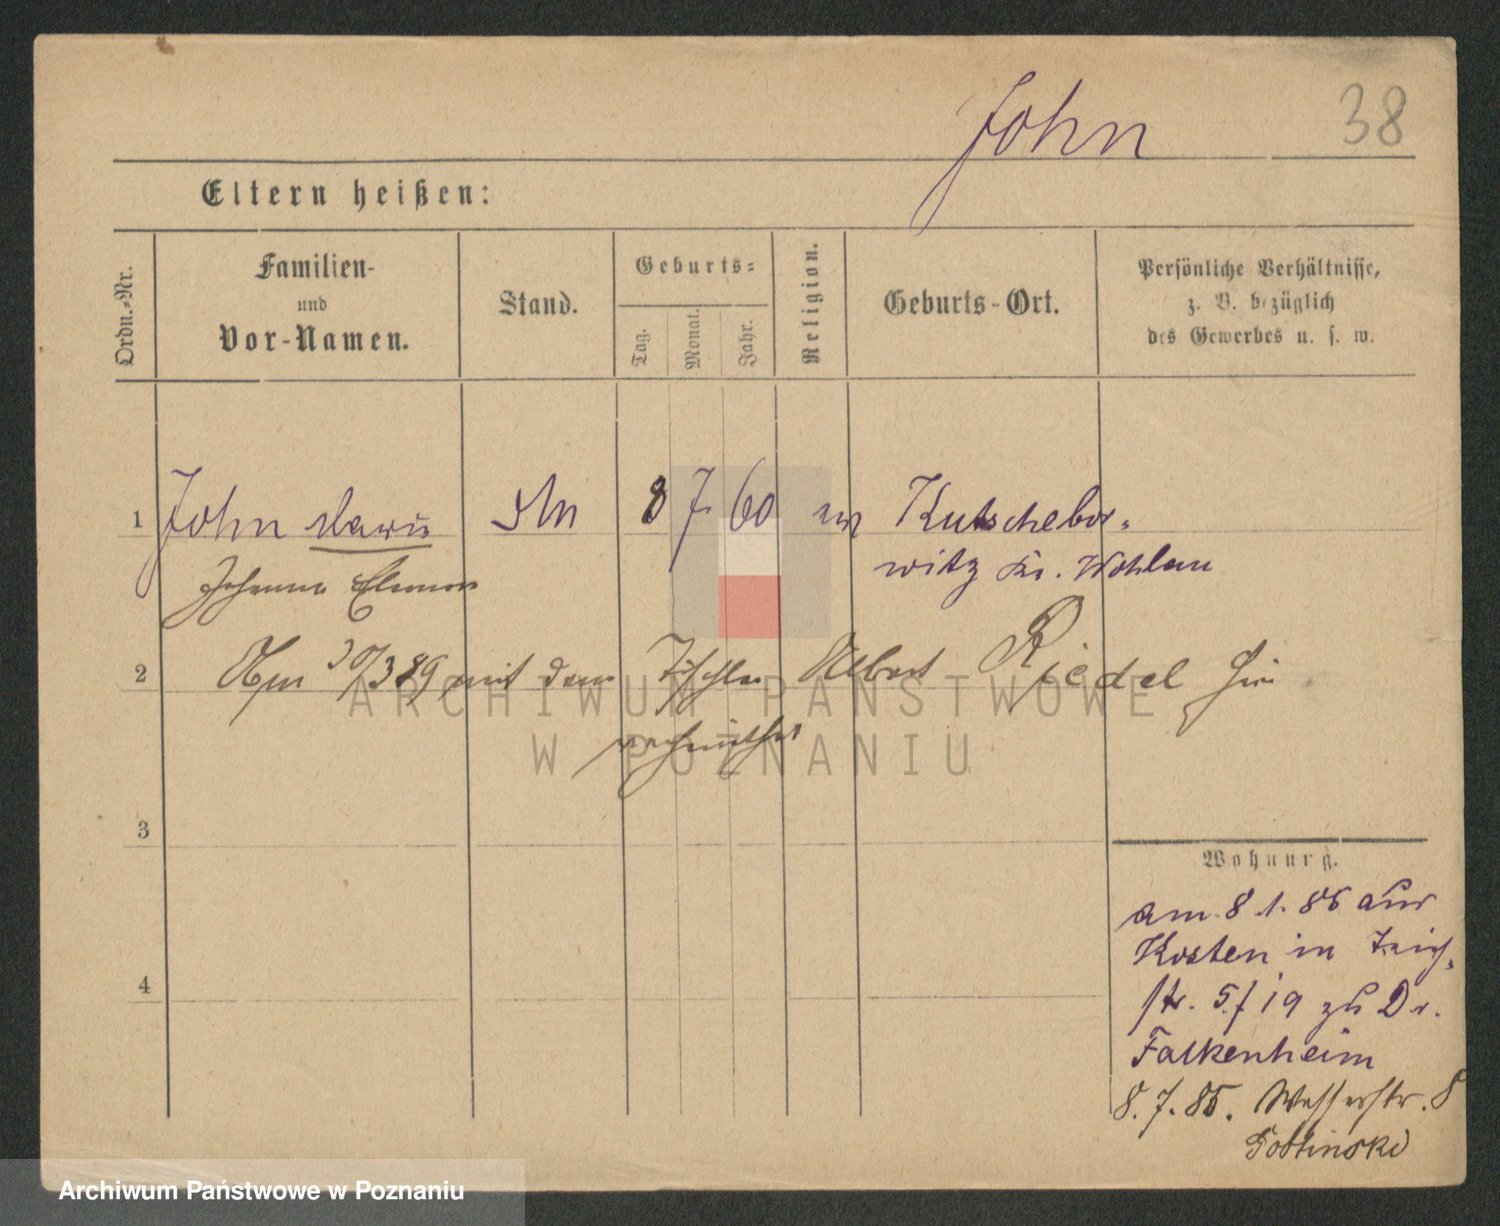 John
38
Eltern heißen:
Ordn.-Nr.
Familien-
und
Vor-Namen.
Stand.
Geburts-
Tag.
Monat.
Jahr.
Religion.
Geburts-Ort.
Persönliche Verhältnisse,
z. B. bezüglich
des Gewerbes u. s. w.
1
John Marie
8 7. 60
Kutschebor-
witz Kr. Wohlau
Johanna
2
Am 30/3 89 mit dem Tischler Albert Riedel hier
verheirathet
ARCHIWUM PAŃSTWOWE
W POZNANIU
3
4
Wohnung.
am 8.1.85 aus
Kosten in Teich-
str. 5 f 19 zu Dr.
Falkenheim
8.7.85. Wasserstr. 8
Archiwum Państwowe w Poznaniu